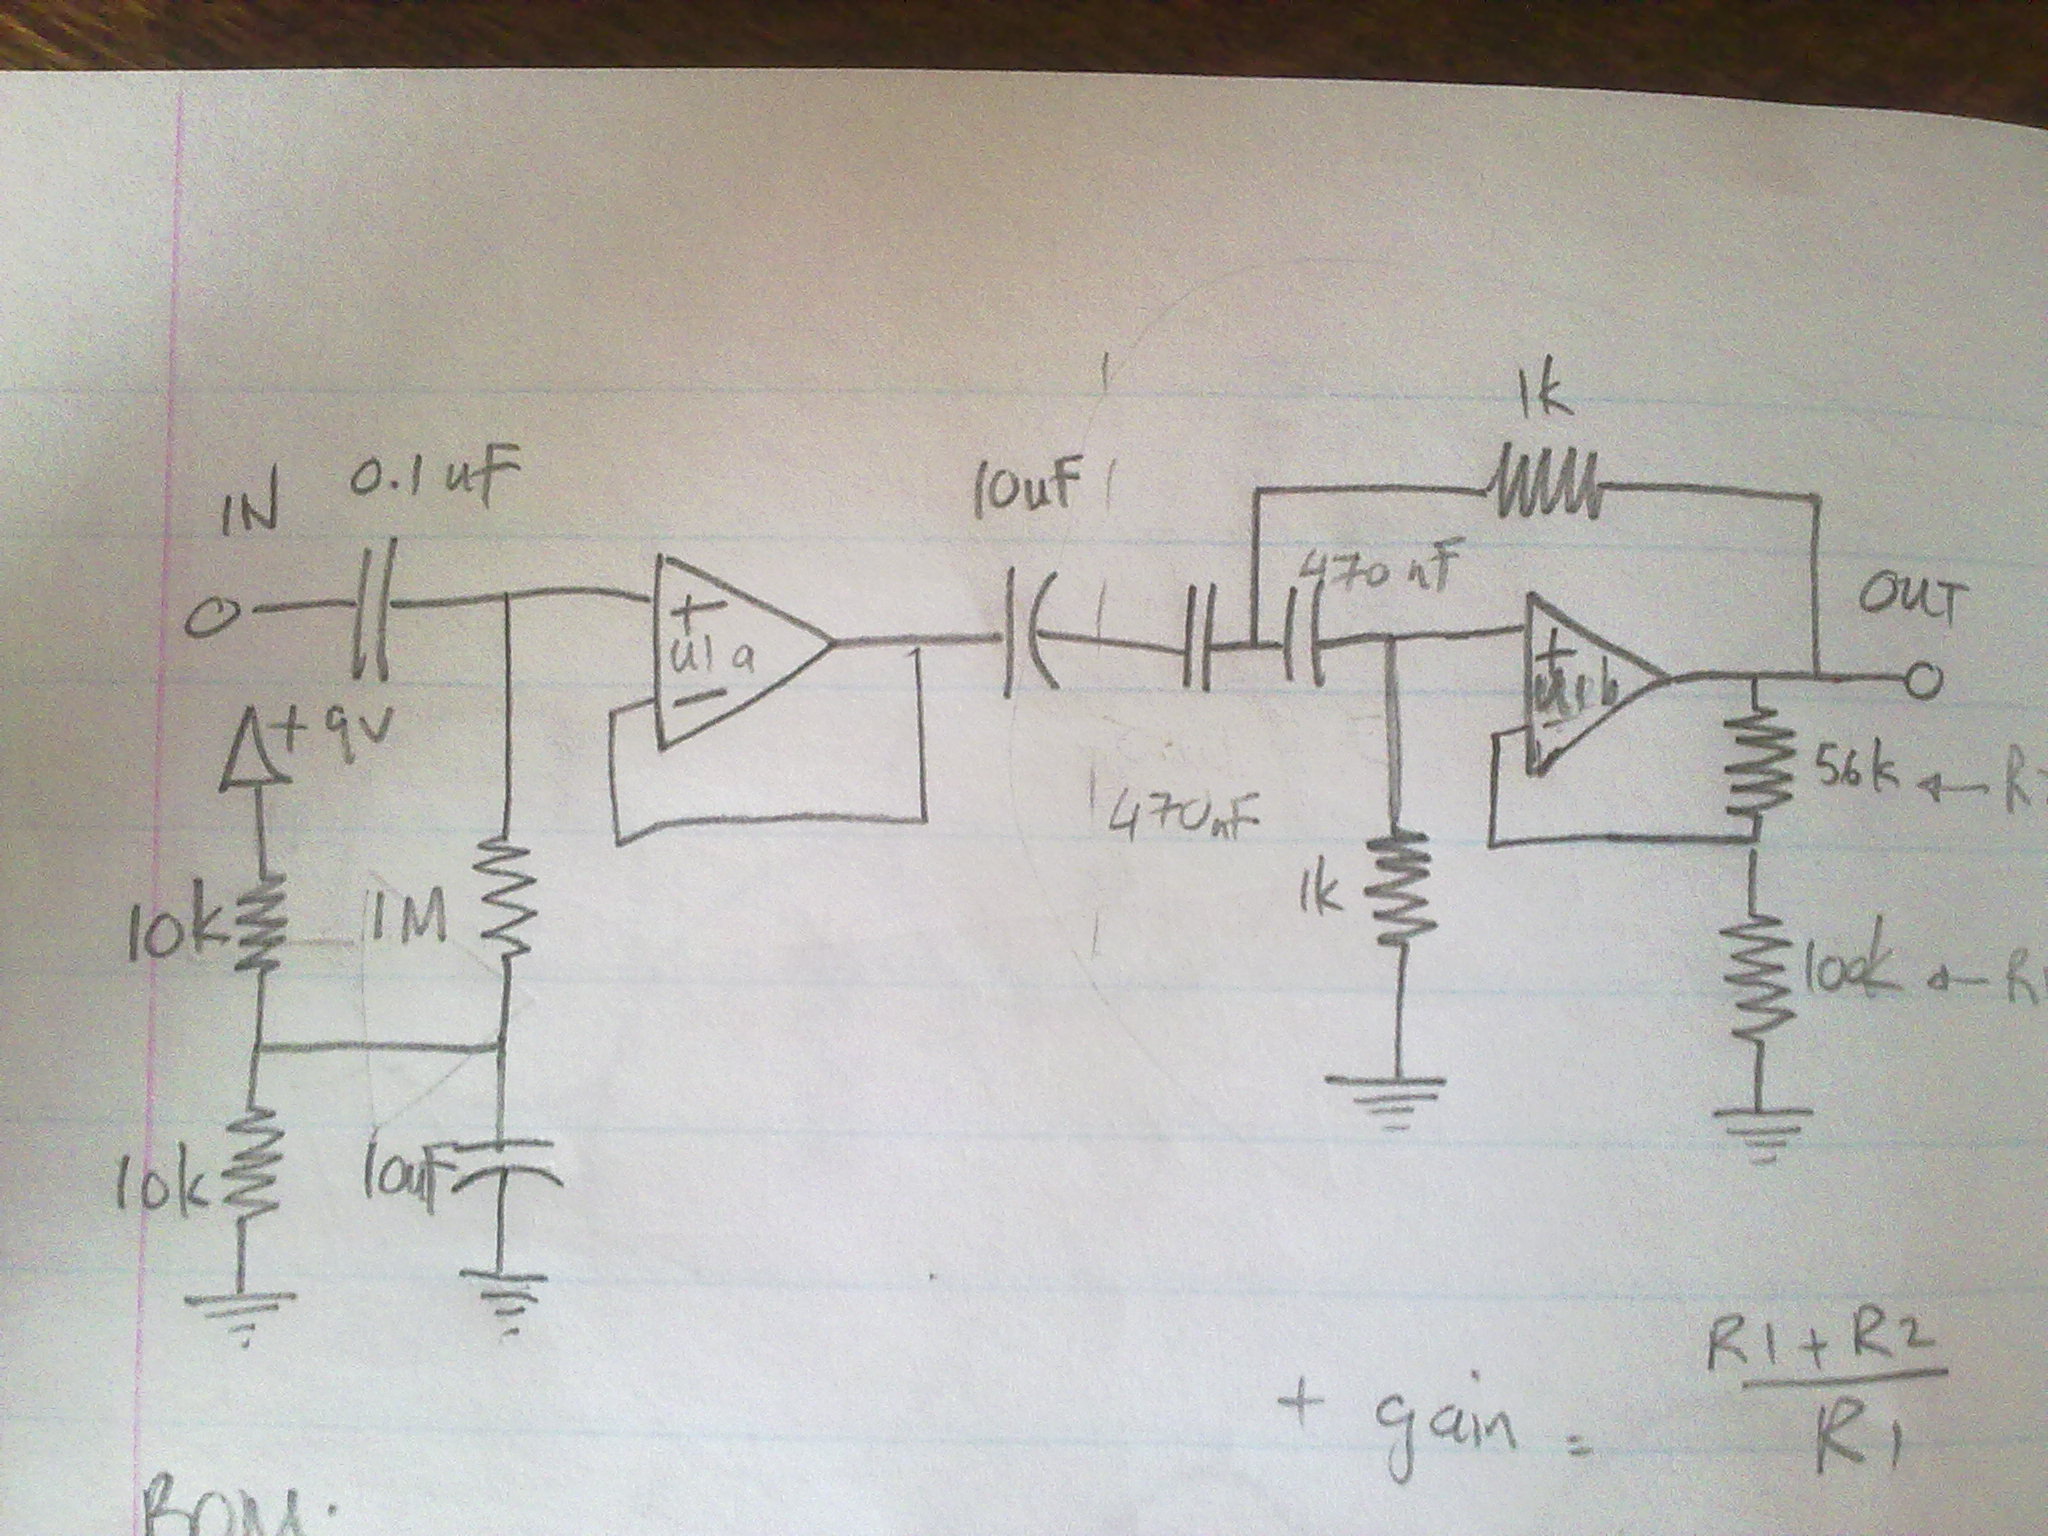 1k
IN
0.1uF
10uF
470nF
+
u1a
-
+
OUT
+9V
56k ←
470nF
10k
1M
1k
100k ←
10k
10uF
+ gain = R1+R2
R1
BOM: